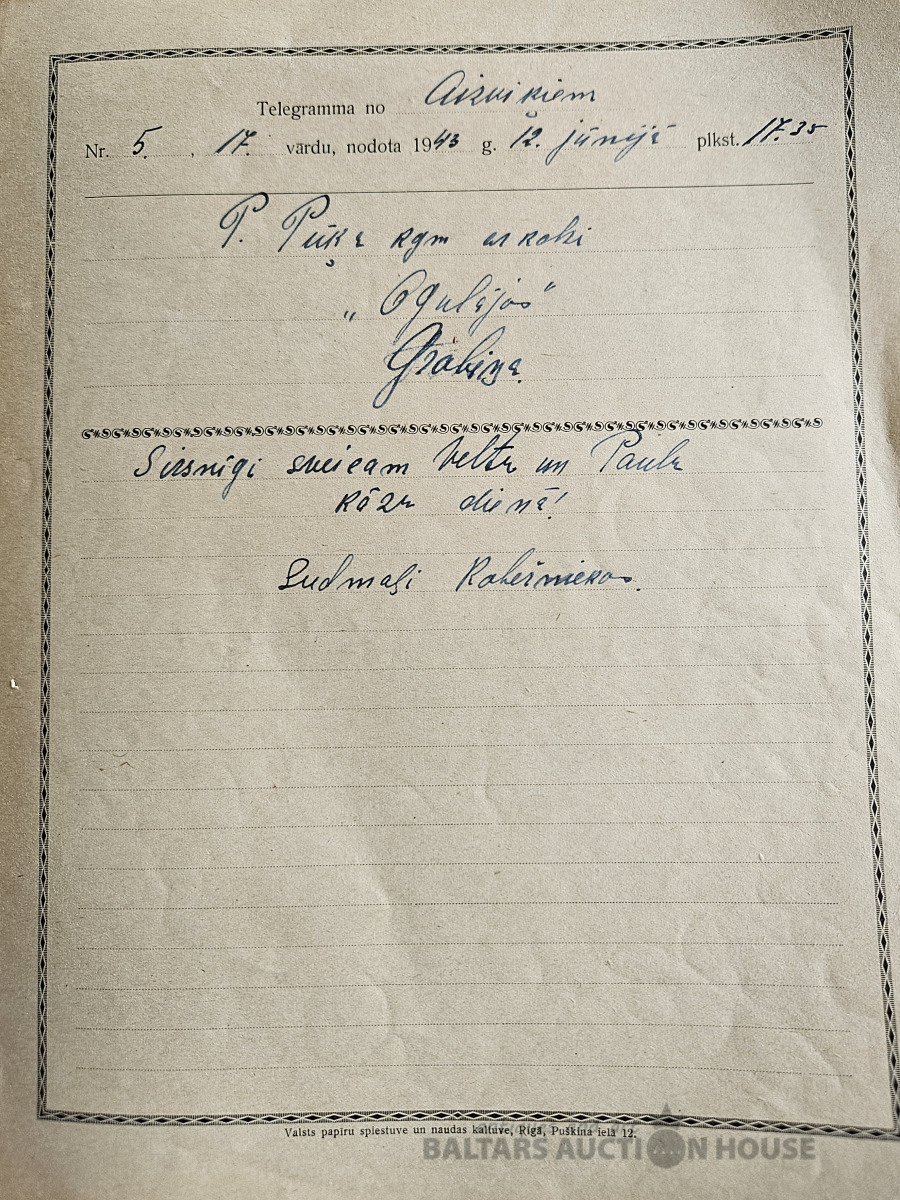 Telegramma no Aizviķiem
Nr. 5. , 17. vārdu, nodota 1943 g. 12. jūnijā plkst. 17.35
P. Pūķa kgm
"Ogulājos"
Grobiņa.
Sirsnīgi sveicam Veltu un Paulu
kāzu dienā!
Sudmaļi Robežniekos.
Valsts papīru spiestuve un naudas kaltuve, Rīgā, Puškina ielā 12.
BALTARS AUCTION HOUSE